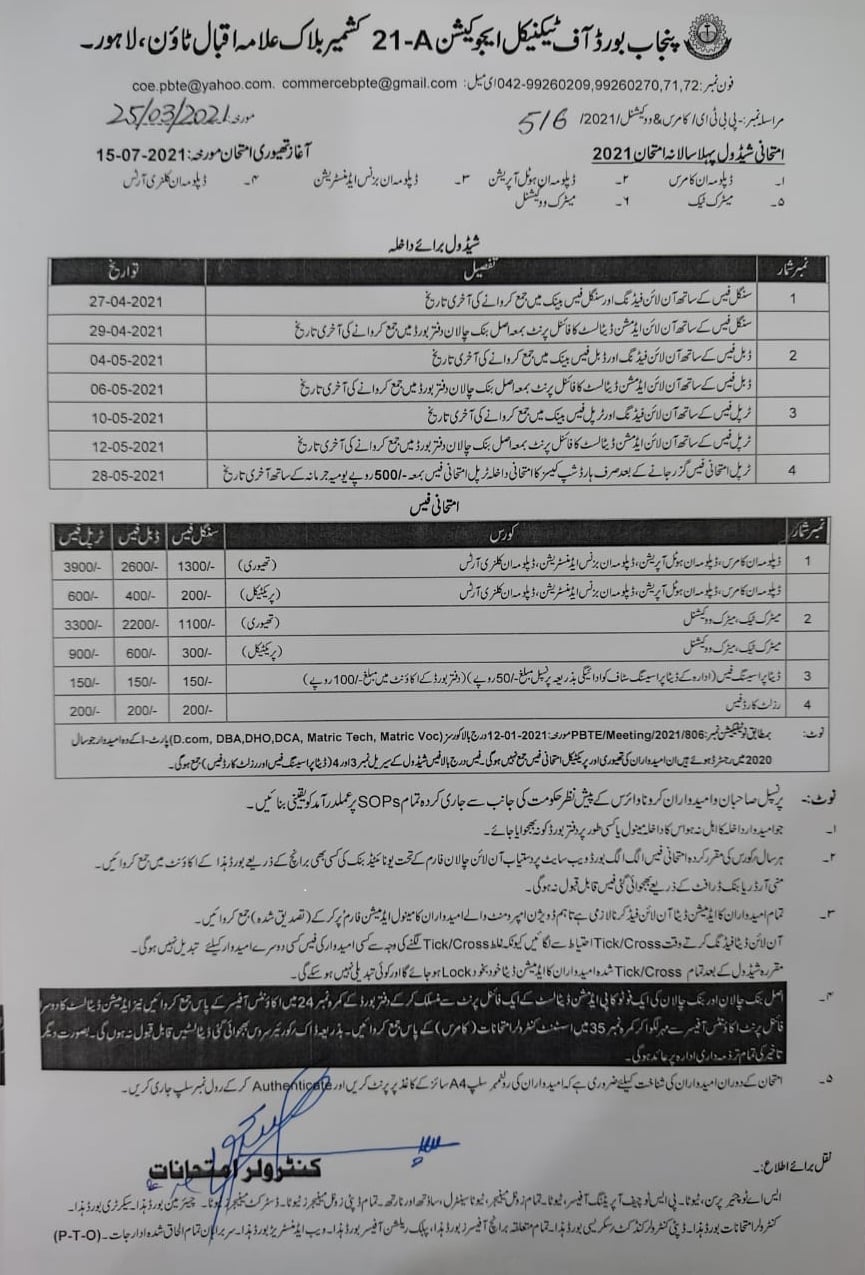 پنجاب بورڈ آف ٹیکنیکل ایجوکیشن 21-A کشمیر بلاک علامہ اقبال ٹاؤن، لاہور۔
فون نمبر: 042-99260209,99260270,71,72 ای میل: coe.pbte@yahoo.com. commercebpte@gmail.com
مراسلہ نمبر:- پی بی ٹی ای/کامرس & ووکیشنل/2021/ 516 مورخہ 25/03/2021
امتحانی شیڈول پہلا سالانہ امتحان 2021 آغاز تھیوری امتحان مورخہ: 15-07-2021
۱۔ ڈپلومہ ان کامرس ۲۔ ڈپلومہ ان ہوٹل آپریشن ۳۔ ڈپلومہ ان بزنس ایڈمنسٹریشن ۴۔ ڈپلومہ ان کلنری آرٹس
۵۔ میٹرک ٹیک ۶۔ میٹرک ووکیشنل
شیڈول برائے داخلہ
نمبر شمار تفصیل تواریخ
1 سنگل فیس کے ساتھ آن لائن فیڈنگ اور سنگل فیس بینک میں جمع کروانے کی آخری تاریخ 27-04-2021
سنگل فیس کے ساتھ آن لائن ایڈمشن ڈیٹا لسٹ کا فائنل پرنٹ بمعہ اصل بنک چالان دفتر بورڈ میں جمع کروانے کی آخری تاریخ 29-04-2021
2 ڈبل فیس کے ساتھ آن لائن فیڈنگ اور ڈبل فیس بینک میں جمع کروانے کی آخری تاریخ 04-05-2021
ڈبل فیس کے ساتھ آن لائن ایڈمشن ڈیٹا لسٹ کا فائنل پرنٹ بمعہ اصل بنک چالان دفتر بورڈ میں جمع کروانے کی آخری تاریخ 06-05-2021
3 ٹرپل فیس کے ساتھ آن لائن فیڈنگ اور ٹرپل فیس بینک میں جمع کروانے کی آخری تاریخ 10-05-2021
ٹرپل فیس کے ساتھ آن لائن ایڈمشن ڈیٹا لسٹ کا فائنل پرنٹ بمعہ اصل بنک چالان دفتر بورڈ میں جمع کروانے کی آخری تاریخ 12-05-2021
4 ٹرپل امتحانی فیس گزر جانے کے بعد صرف ہارڈشپ کیسز کا امتحانی داخلہ ٹرپل امتحانی فیس بمعہ -/500 روپے یومیہ جرمانہ کے ساتھ آخری تاریخ 28-05-2021
امتحانی فیس
نمبر شمار کورس سنگل فیس ڈبل فیس ٹرپل فیس
1 ڈپلومہ ان کامرس، ڈپلومہ ان ہوٹل آپریشن، ڈپلومہ ان بزنس ایڈمنسٹریشن، ڈپلومہ ان کلنری آرٹس (تھیوری) 1300/- 2600/- 3900/-
ڈپلومہ ان کامرس، ڈپلومہ ان ہوٹل آپریشن، ڈپلومہ ان بزنس ایڈمنسٹریشن، ڈپلومہ ان کلنری آرٹس (پریکٹیکل) 200/- 400/- 600/-
2 میٹرک ٹیک، میٹرک ووکیشنل (تھیوری) 1100/- 2200/- 3300/-
میٹرک ٹیک، میٹرک ووکیشنل (پریکٹیکل) 300/- 600/- 900/-
3 ڈیٹا پراسیسنگ فیس (ادارہ کے ڈیٹا پراسیسنگ سٹاف کو ادائیگی بذریعہ پرنسپل مبلغ -/50 روپے) (دفتر بورڈ کے اکاؤنٹ میں مبلغ -/100 روپے) 150/- 150/- 150/-
4 رزلٹ کارڈ فیس 200/- 200/- 200/-
نوٹ: بمطابق نوٹیفکیشن نمبر: PBTE/Meeting/2021/806 مورخہ: 12-01-2021 درج بالا کورسز (D.com, DBA,DHO,DCA, Matric Tech, Matric Voc) پارٹ-I کے وہ امیدوار جو سال
2020 میں رجسٹرڈ ہوئے ہیں ان امیدواران کی تھیوری اور پریکٹیکل امتحانی فیس جمع نہیں ہوگی۔ فیس درج بالا فیس شیڈول کے سیریل نمبر 3 اور 4 (ڈیٹا پراسیسنگ فیس اور رزلٹ کارڈ فیس) جمع ہوگی۔
نوٹ:- پرنسپل صاحبان و امیدواران کرونا وائرس کے پیش نظر حکومت کی جانب سے جاری کردہ تمام SOPs پر عملدرآمد کو یقینی بنائیں۔
۱۔ جو امیدوار داخلہ کا اہل نہ ہو اس کا داخلہ مینول یا کسی طور پر دفتر بورڈ کو نہ بھجوایا جائے۔
۲۔ ہر سال/کورس کی مقرر کردہ امتحانی فیس الگ الگ بورڈ ویب سایٹ پر دستیاب آن لائن چالان فارم کے تحت یونائیٹڈ بنک کی کسی بھی برانچ کے ذریعے بورڈ ہذا کے اکاؤنٹ میں جمع کروائیں۔
منی آرڈر یا بنک ڈرافٹ کے ذریعے بھجوائی گئی فیس قابل قبول نہ ہوگی۔
۳۔ تمام امیدواران کا ایڈمیشن ڈیٹا آن لائن فیڈ کرنا لازمی ہے تاہم ڈویژن امپرومنٹ والے امیدواران کا مینول ایڈمیشن فارم پر کر کے (تصدیق شدہ) جمع کروائیں۔
آن لائن ڈیٹا فیڈنگ کرتے وقت Tick/Cross احتیاط سے لگائیں کیونکہ غلط Tick/Cross لگنے کی وجہ سے کسی امیدوار کی فیس کسی دوسرے امیدوار کیلئے تبدیل نہیں ہوگی۔
مقررہ شیڈول کے بعد تمام Tick/Cross شدہ امیدواران کا ایڈمیشن ڈیٹا خودبخود Lock ہو جائے گا اور کوئی تبدیلی نہیں ہو سکے گی۔
۴۔ اصل بنک چالان اور بنک چالان کی ایک فوٹو کاپی ایڈمشن ڈیٹا لسٹ کے ایک فائنل پرنٹ سے منسلک کر کے دفتر بورڈ کے کمرہ نمبر 24 میں اکاؤنٹس آفیسر کے پاس جمع کروائیں نیز ایڈمیشن ڈیٹا لسٹ کا دوسرا
فائنل پرنٹ اکاؤنٹس آفیسر سے مہر لگوا کر کمرہ نمبر 35 میں اسسٹنٹ کنٹرولر امتحانات (کامرس) کے پاس جمع کروائیں۔ بذریعہ ڈاک/کوریئر سروس بھجوائی گئی ڈیٹا لسٹیں قابل قبول نہ ہوں گی۔ بصورت دیگر
تاخیر کی تمام تر ذمہ داری ادارہ پر عائد ہوگی۔
۵۔ امتحان کے دوران امیدواران کی شناخت کیلئے ضروری ہے کہ امیدواران کی رولنمبر سلپ A4 سائز کے کاغذ پر پرنٹ کریں اور Authenticate کر کے رول نمبر سلپ جاری کریں۔
کنٹرولر امتحانات
نقل برائے اطلاع:۔
ایس اے ٹو چیئر پرسن، ٹیوٹا۔ پی ایس ٹو چیف آپریٹنگ آفیسر، ٹیوٹا۔ تمام زونل مینیجر، ٹیوٹا سینٹرل، ساؤتھ اور نارتھ۔ تمام ڈپٹی زونل مینیجرز ٹیوٹا۔ ڈسٹرکٹ مینیجرز ٹیوٹا۔ چیئرمین بورڈ ہذا۔ سیکرٹری بورڈ ہذا۔
کنٹرولر امتحانات بورڈ ہذا۔ ڈپٹی کنٹرولر کنڈکٹ/سکریسی بورڈ ہذا۔ تمام متعلقہ برانچ آفیسرز بورڈ ہذا، پبلک ریلیشن آفیسر بورڈ ہذا۔ ویب ایڈمنسٹریٹر بورڈ ہذا۔ سربراہان تمام الحاق شدہ ادارجات۔ (P-T-O)